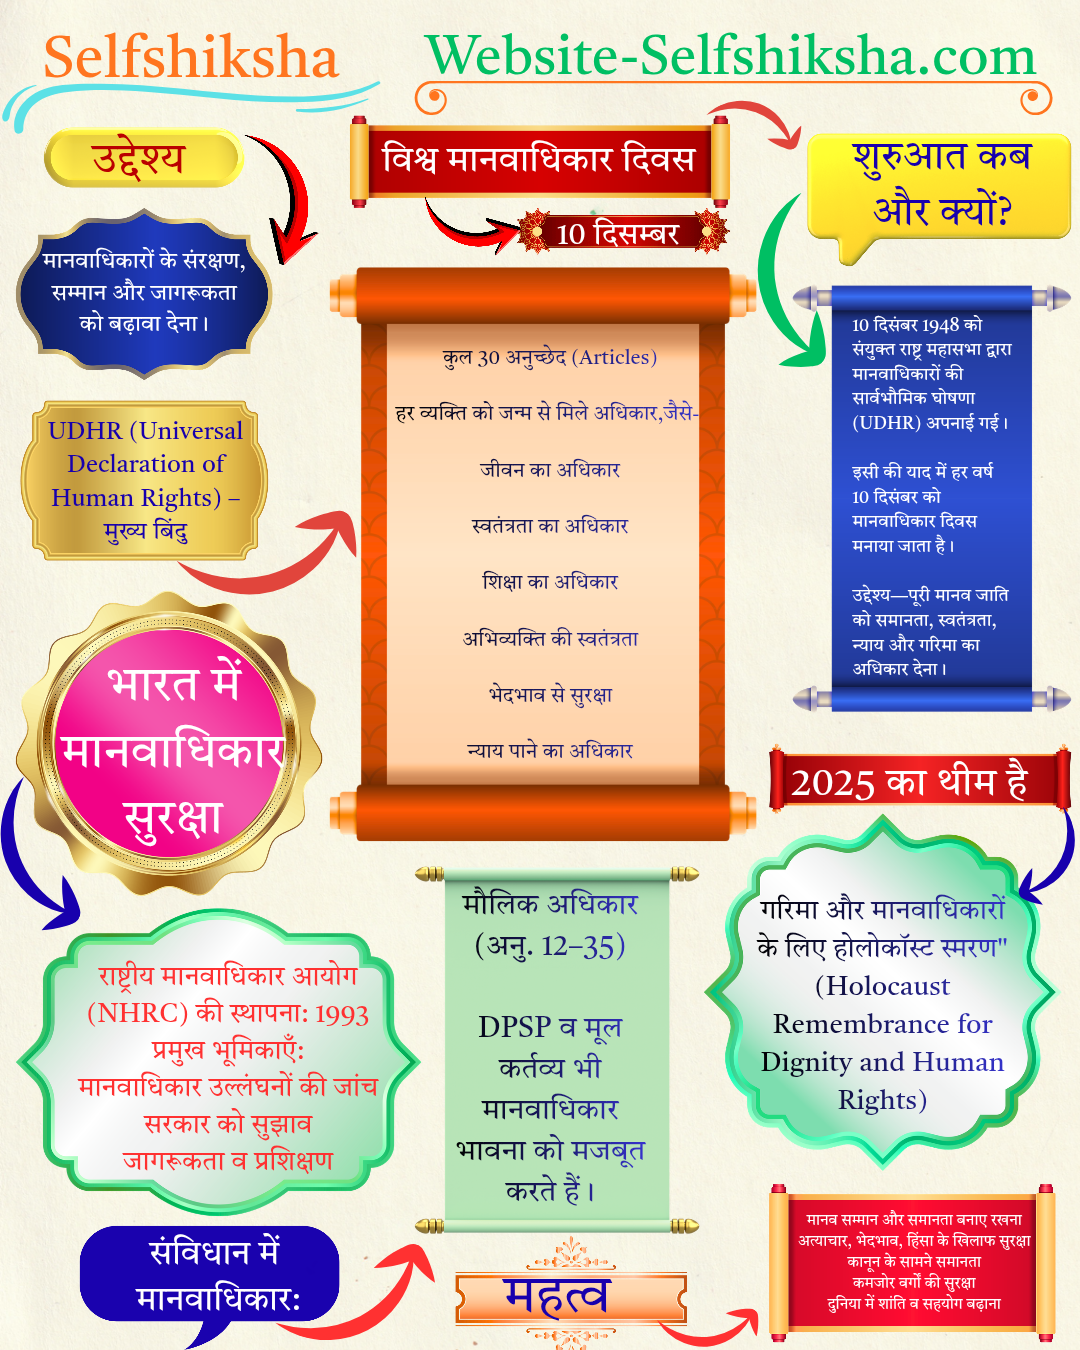 Selfshiksha
Website-Selfshiksha.com
विश्व मानवाधिकार दिवस
10 दिसम्बर
उद्देश्य
मानवाधिकारों के संरक्षण,
सम्मान और जागरूकता
को बढ़ावा देना।
शुरुआत कब
और क्यों?
10 दिसंबर 1948 को
संयुक्त राष्ट्र महासभा द्वारा
मानवाधिकारों की
सार्वभौमिक घोषणा
(UDHR) अपनाई गई।
इसी की याद में हर वर्ष
10 दिसंबर को
मानवाधिकार दिवस
मनाया जाता है।
उद्देश्य—पूरी मानव जाति
को समानता, स्वतंत्रता,
न्याय और गरिमा का
अधिकार देना।
UDHR (Universal
Declaration of
Human Rights) –
मुख्य बिंदु
कुल 30 अनुच्छेद (Articles)
हर व्यक्ति को जन्म से मिले अधिकार,जैसे-
जीवन का अधिकार
स्वतंत्रता का अधिकार
शिक्षा का अधिकार
अभिव्यक्ति की स्वतंत्रता
भेदभाव से सुरक्षा
न्याय पाने का अधिकार
भारत में
मानवाधिकार
सुरक्षा
राष्ट्रीय मानवाधिकार आयोग
(NHRC) की स्थापना: 1993
प्रमुख भूमिकाएँ:
मानवाधिकार उल्लंघनों की जांच
सरकार को सुझाव
जागरूकता व प्रशिक्षण
संविधान में
मानवाधिकार:
मौलिक अधिकार
(अनु. 12–35)
DPSP व मूल
कर्तव्य भी
मानवाधिकार
भावना को मजबूत
करते हैं।
2025 का थीम है
गरिमा और मानवाधिकारों
के लिए होलोकॉस्ट स्मरण"
(Holocaust
Remembrance for
Dignity and Human
Rights)
महत्व
मानव सम्मान और समानता बनाए रखना
अत्याचार, भेदभाव, हिंसा के खिलाफ सुरक्षा
कानून के सामने समानता
कमजोर वर्गों की सुरक्षा
दुनिया में शांति व सहयोग बढ़ाना